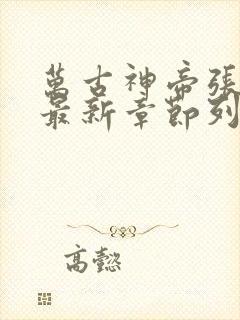 萬古神帝張
最新章節列
高懿